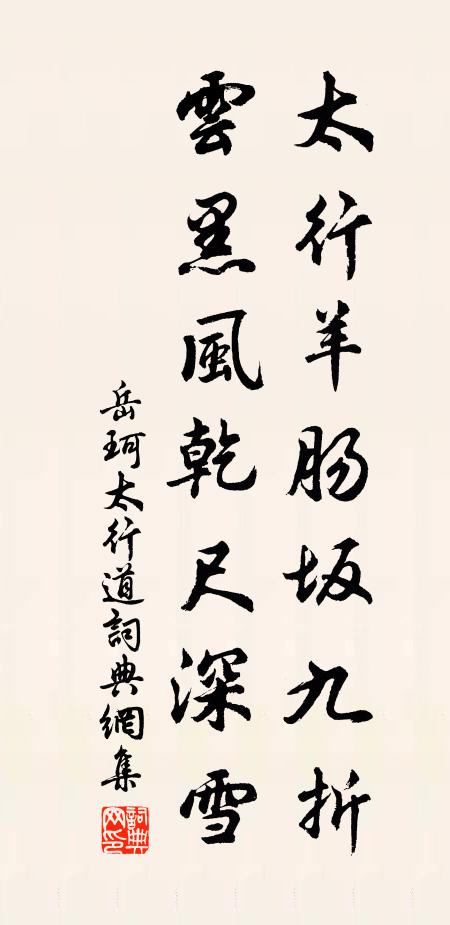 太行羊腸坂九折
雲黑風乾尺深雪
岳珂太行道詞典網集
詞典网印